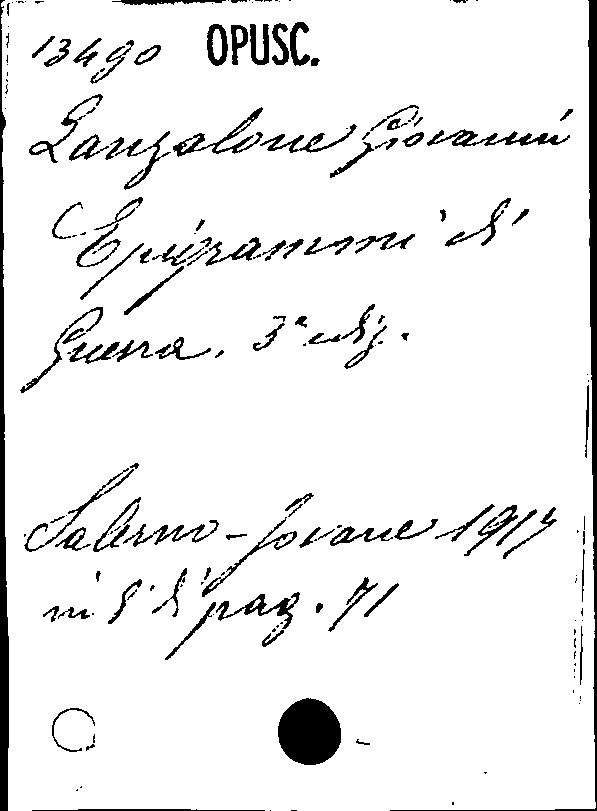 13490 OPUSC.
Lanzalone Giovanni
Epigrammi di
Guerra. 3ª ediz.
Salerno - Jovane 1917
in 8° di pag. 71